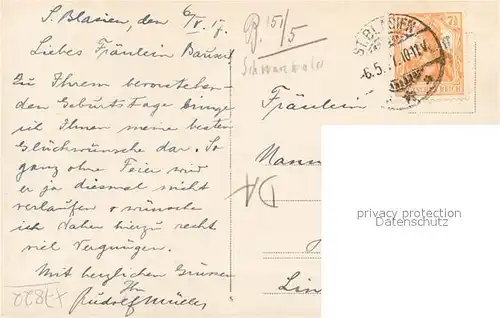 St. Blasien, den 6/V. 17.
Liebes Fräulein
Zu Ihrem bevorstehen-
den Geburtstage bringe
ich Ihnen meine besten
Glückwünsche dar. So
ganz ohne Feier wird
er ja diesmal nicht
verlaufen + wünsche
ich daher hierzu recht
viel Vergnügen.
Mit herzlichen Grüssen
Ihr
Rudolf Müller
B. 15/5
Schwarzwald
ST. BLASIEN
6.5.17. 10-11V.
7½
REICH
Fräulein
Mann
DA
Lin
privacy protection
Datenschutz
+7822